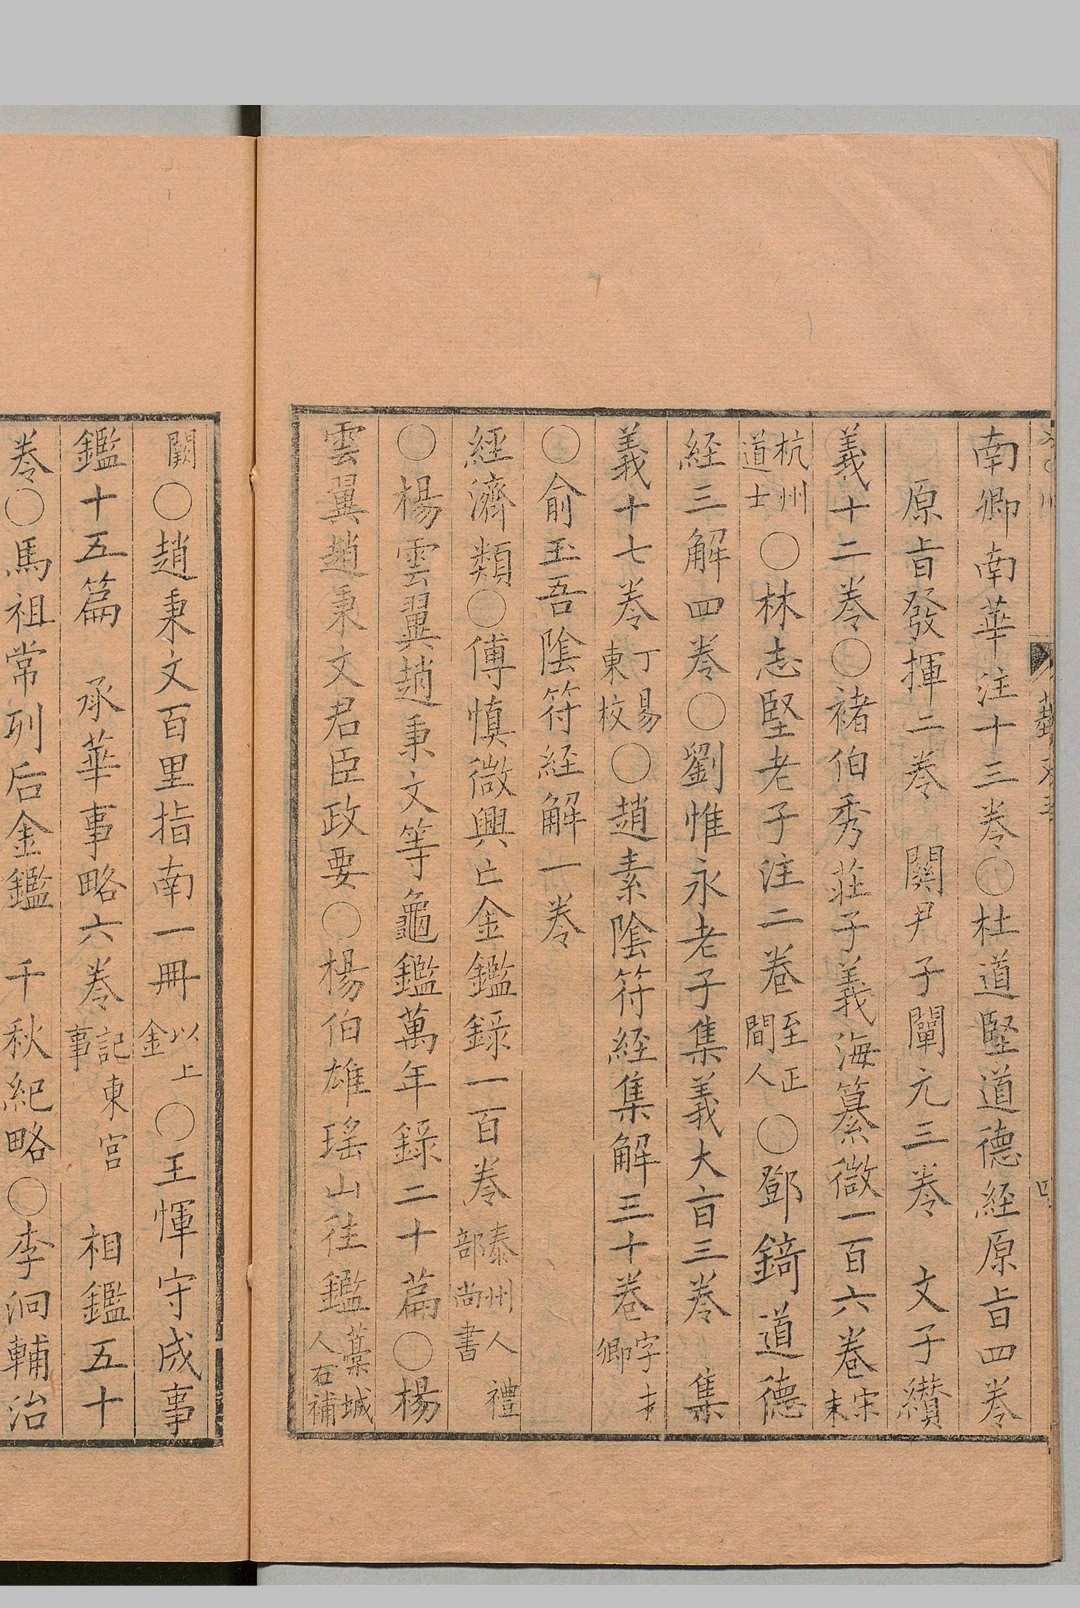 南卿南華注十三卷〇杜道堅道德經原旨四卷
原旨發揮二卷　關尹子闡元三卷　文子纘
義十二卷〇褚伯秀莊子義海纂微一百六卷宋末
杭州道士〇林志堅老子注二卷至正間人〇鄧錡道德
經三解四卷〇劉惟永老子集義大旨三卷　集
義十七卷丁易東校〇趙素陰符經集解三十卷字才卿
〇俞玉吾陰符經解一卷
經濟類〇傅慎微興亡金鑑錄一百卷泰州人禮部尚書
〇楊雲翼趙秉文等龜鑑萬年錄二十篇〇楊
雲翼趙秉文君臣政要〇楊伯雄瑤山往鑑藁城人右補
闕〇趙秉文百里指南一冊以上金〇王惲守成事
鑑十五篇　承華事略六卷記東宮事　相鑑五十
卷〇馬祖常列后金鑑　千秋紀略〇李泂輔治